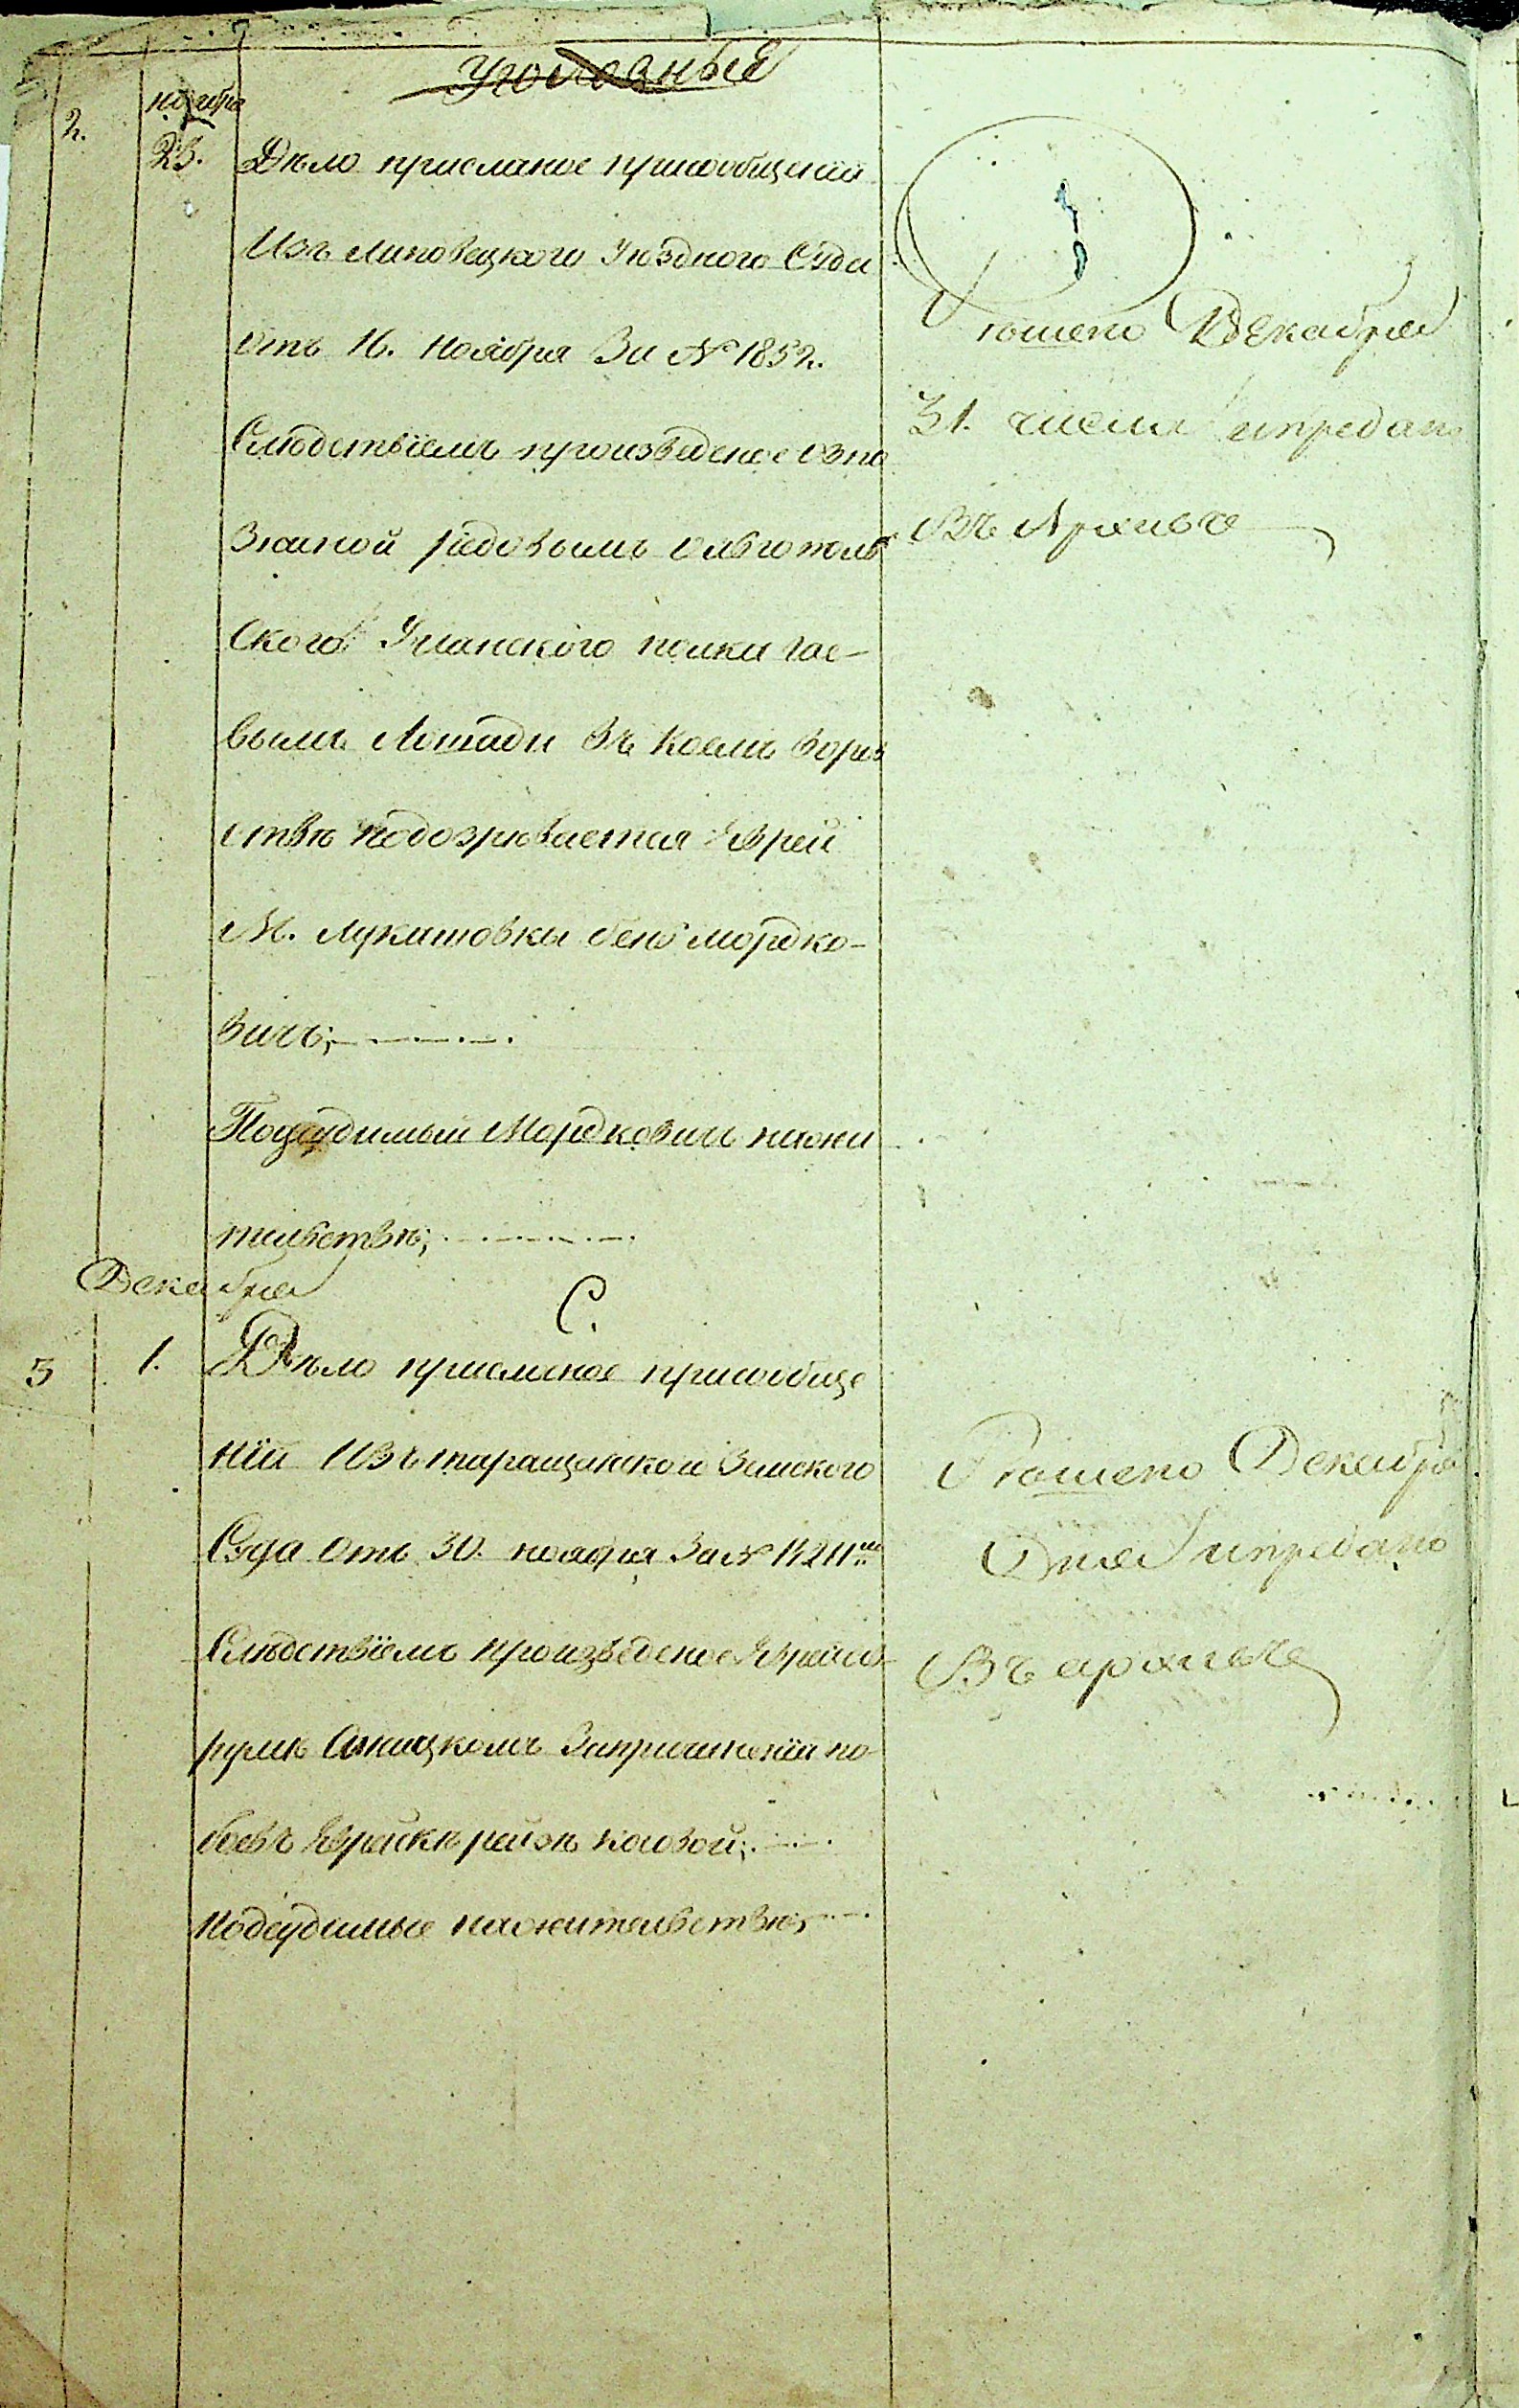 Уголовные
2.
ноября
23. Дѣло присланое присообщеніи
Изъ Липовецкого Уѣздного Суда
отъ 16. Ноября За № 1852.
Слѣдствіемъ произведеное озпо
знаной рядовымъ Ольвіополь
ского Уланского полка Гае-
вымъ Лошади Въ коемъ воров
ствѣ подозрѣвается Еврей
М. Лукашовки бенъ мордко-
вичъ;
Подсудимый Мордковичъ нажи
тельствѣ;
Рѣшено Декабря
31. числа ипредано
Въ Архивъ
Декабря
С.
3
1. Дѣло присланое присообще
ніи Изъ таращанского Земского
Суда отъ 30. ноября За №
Слѣдствіемъ произведеное
Запричиненіи по-
боевъ Еврейкѣ рейзѣ
подсудимые нажительствѣ;
Рѣшено Декабря
Дня ипредано
Въ архивъ